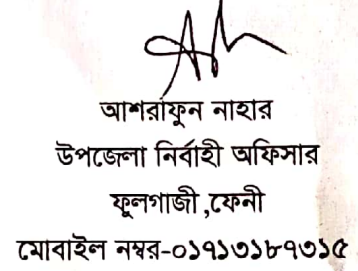 আশরাফুন নাহার
উপজেলা নির্বাহী অফিসার
ফুলগাজী ,ফেনী
মোবাইল নম্বর-০১৭১৩১৮৭৩১৫